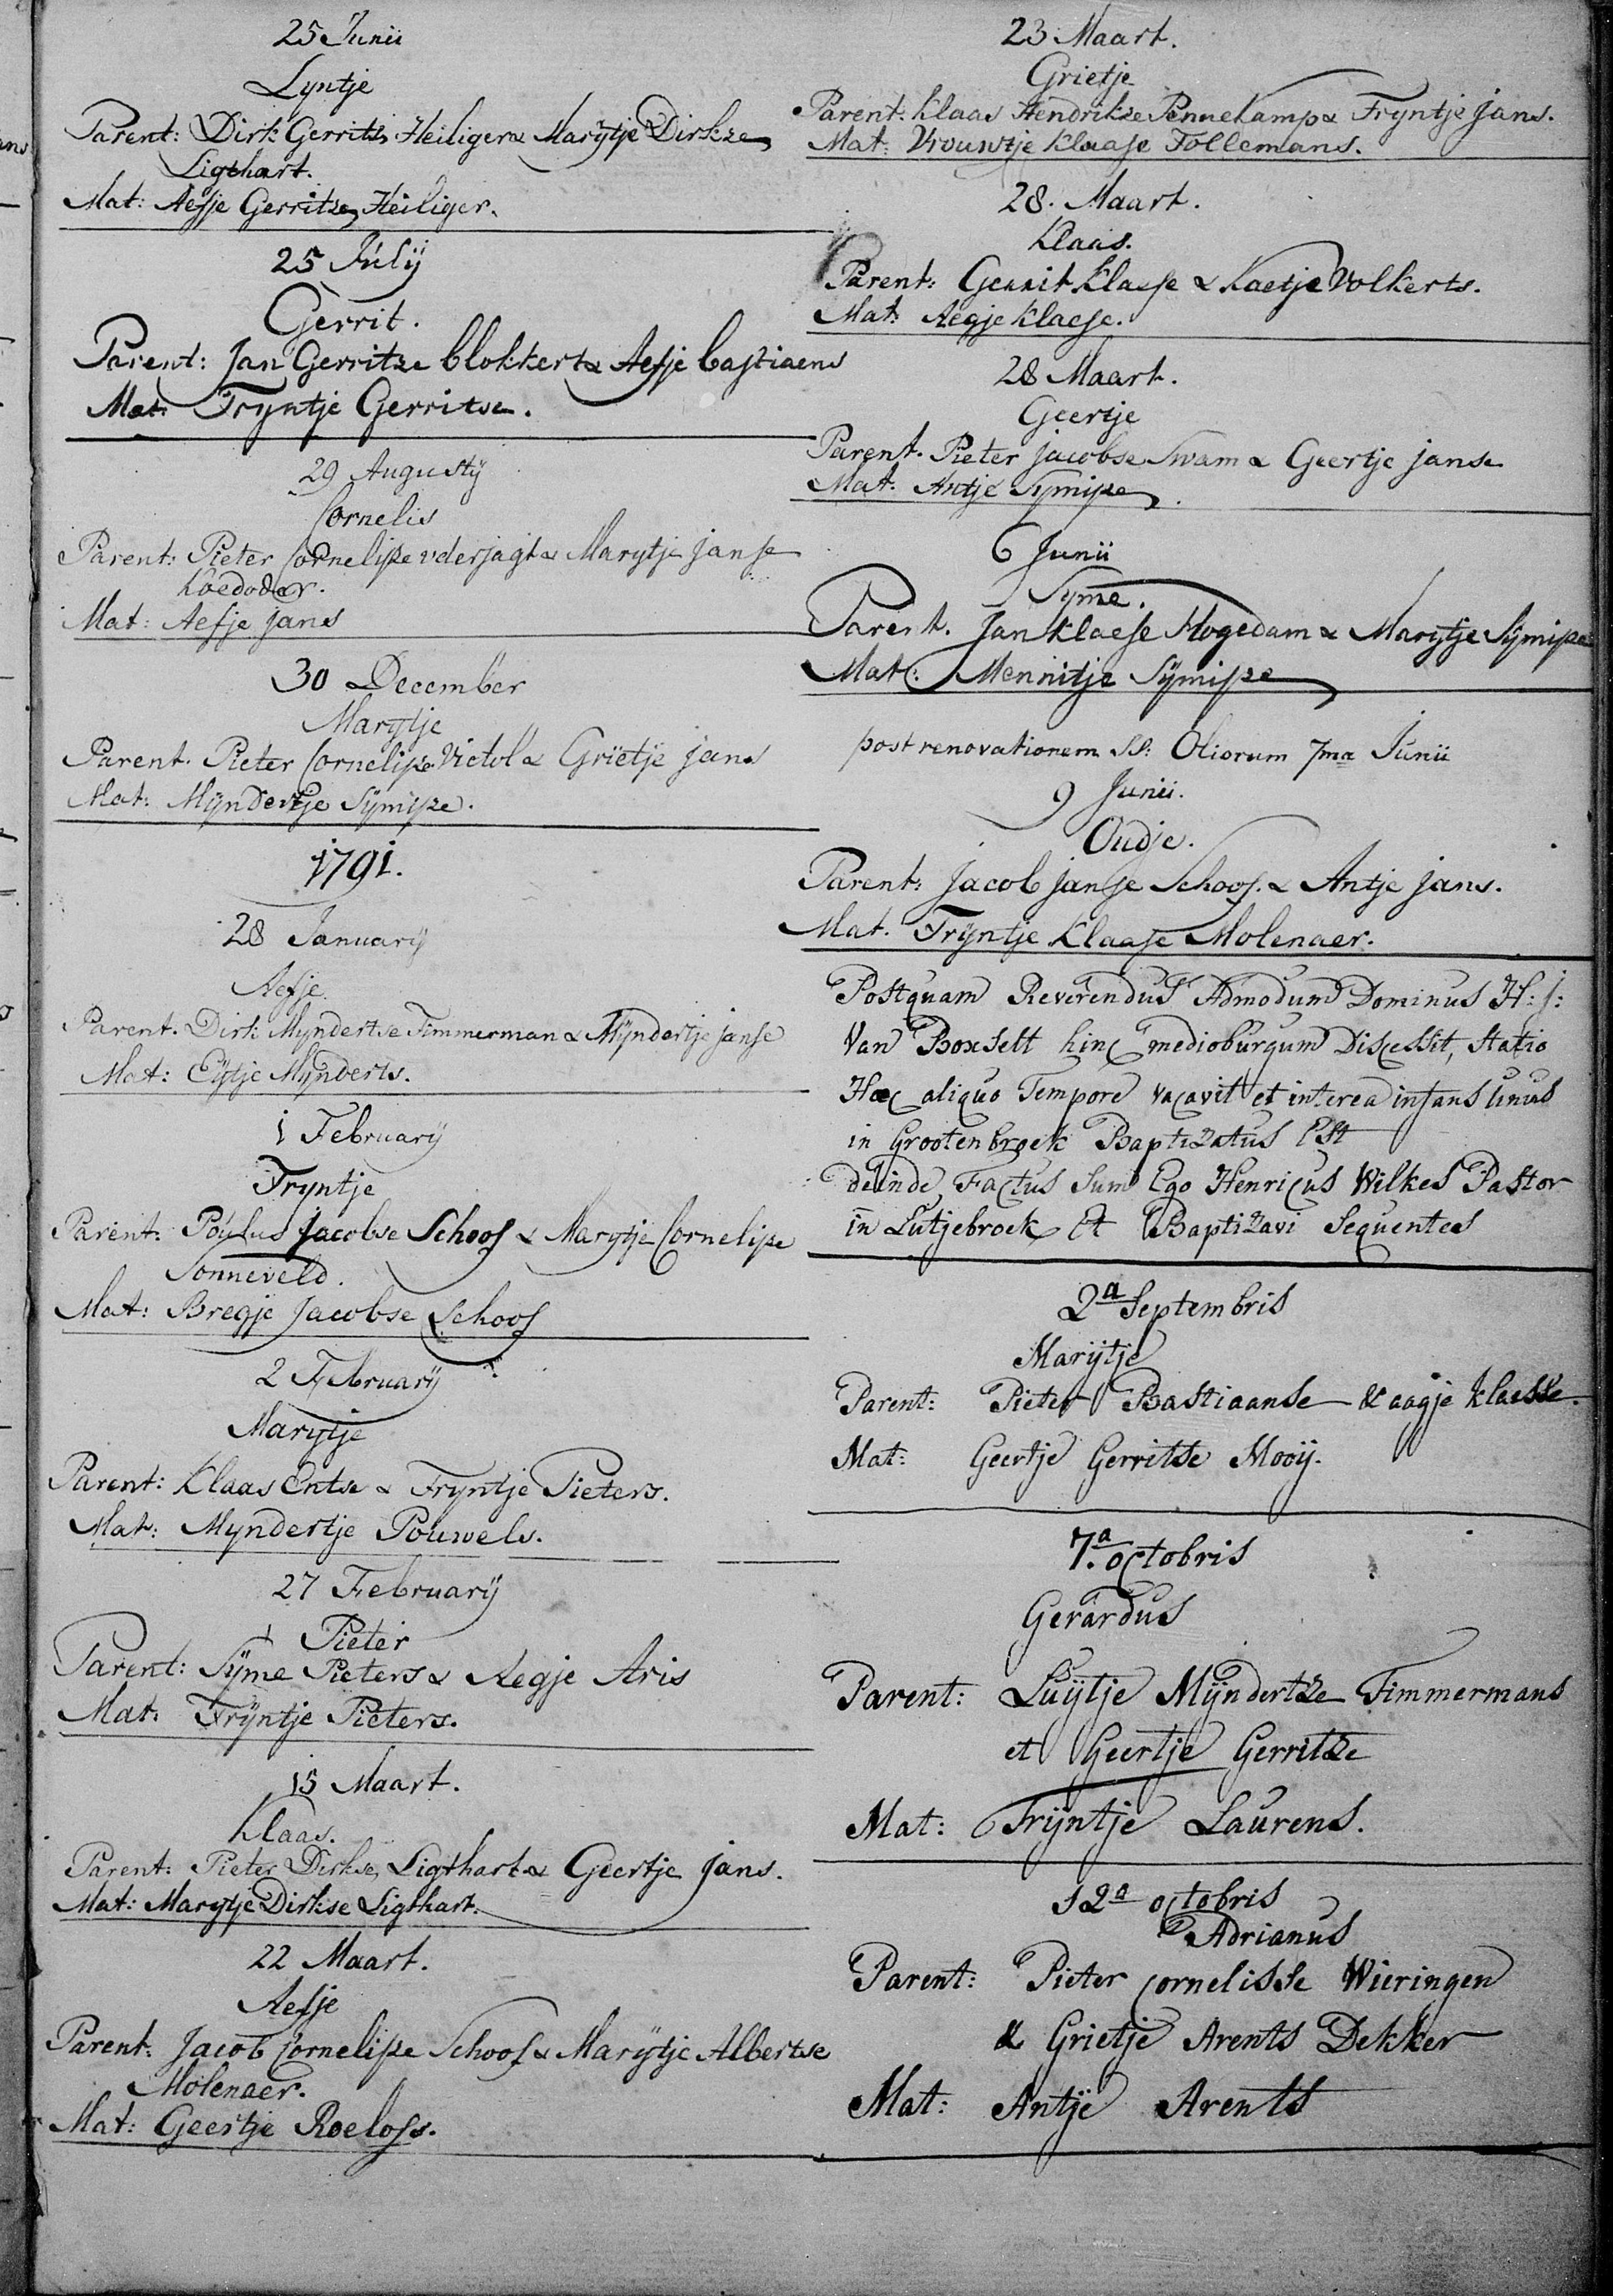 25 Junii
Lyntje
Parent: Dirk Gerritze Heiliger & Marijtje Dirkze
Ligthart.
Mat: Aefje Gerritze Heiliger.
25 Julij
Gerrit.
Parent: Jan Gerritze blokker & Aefje bastiaens
Mat: Tryntje Gerritse.
29 Augustij
Cornelis
Parent: Pieter Cornelisze vderjagt & Marytje janse
koedooder.
Mat: Aefje jans
30 December
Marytje
Parent. Pieter Cornelisze Victol & Grietje jans
Mat: Mijndertje Sijmisze.
1791.
28 Januarij
Aefje
Parent. Dirk Myndertse Timmerman & Mijndertje janse
Mat: Eytje Mijnderts.
1 Februarij
Tryntje
Parent: Poulus jacobse Schoof & Marytje Cornelisze
Sonneveld.
Mat: Bregje Jacobse Schoof
2 Februarij
Marytje
Parent: Klaas Entse & Tryntje Pieters.
Mat: Myndertje Pouwels.
27 Februarij
Pieter
Parent: Sijme Pieters & Aegje Aris
Mat: Trijntje Pieters.
15 Maart.
Klaas.
Parent: Pieter Dirkse Ligthart & Geertje jans.
Mat: Marytje Dirkse Ligthart.
22 Maart.
Aefje
Parent: Jacob Cornelisze Schoof & Marijtje Albertse
Molenaer.
Mat: Geertje Roelofs.
23 Maart.
Grietje
Parent: Klaas Hendrikze Pennekamp & Tryntje jans.
Mat: Vrouwtje Klaase Follemans.
28. Maart.
Klaas.
Parent: Gerrit Klaese & Kaetje Volkerts.
Mat: Aegje Klaese.
28 Maart.
Geertje
Parent. Pieter jacobse Swam & Geertje janse
Mat: Antje Symisze.
6 Junii
Syme.
Parent. Jan Klaese Hogedam & Marytje Sijmisze
Mat: Mennitje Sijmisze
post renovationem SS: Oliorum 7ma Junii
9 Junii.
Oudje.
Parent: Jacob janse Schoof. & Antje jans.
Mat. Trijntje Klaase Molenaer.
Postquam Reverendus Admodum Dominus H: J:
Van Boxselt hinc medioburgum Discessit, statio
Hæc aliquo Tempore vacavit et interea infans unus
in Grootenbroek Baptizatus Est
deinde Factus Sum Ego Henricus Wilkes Pastor
in Lutjebroek Et Baptizavi Sequentes
2a Septembris
Marijtje
Parent: Pieter Bastiaanse & aagje Klaesse.
Mat: Geertje Gerritse Mooij.
7a. octobris
Gerardus
Parent: Luijtje Mijndertze Timmermans
et Geertje Gerritze
Mat: Trijntje Laurens.
12a octobris
Adrianus
Parent: Pieter cornelisse Wieringen
& Grietje Arents Dekker
Mat: Antje Arents